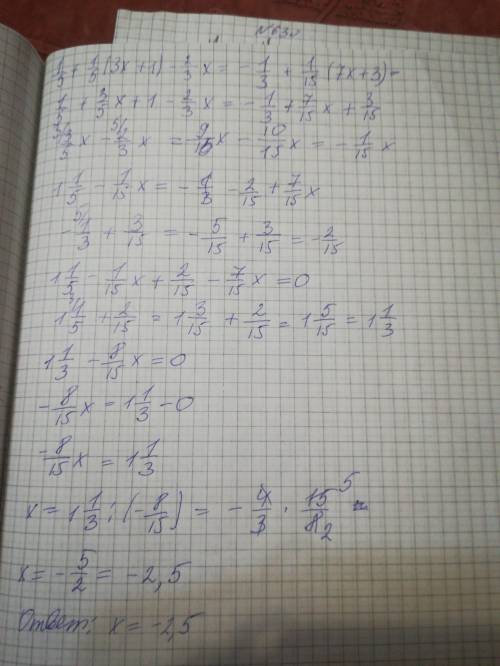 №630
1/5 + 1/5(3x+1) - 2/3 x = - 1/3 + 1/15 (7x+3) -
1/5 + 3/5 x + 1 - 2/3 x = - 1/3 + 7/15 x + 3/15
3/5 x - 2/3 x = 9/15 x - 10/15 x = - 1/15 x
1 1/5 - 1/15 x = - 1/3 - 2/15 + 7/15 x
- 1/3 + 3/15 = - 5/15 + 3/15 = - 2/15
1 1/5 - 1/15 x + 2/15 - 7/15 x = 0
1 1/5 + 2/15 = 1 3/15 + 2/15 = 1 5/15 = 1 1/3
1 1/3 - 8/15 x = 0
- 8/15 x = 1 1/3 - 0
- 8/15 x = 1 1/3
x = 1 1/3 : (- 8/15) = - 4/3 · 15/8 5 2 =
x = - 5/2 = -2,5
Ответ: x = -2,5